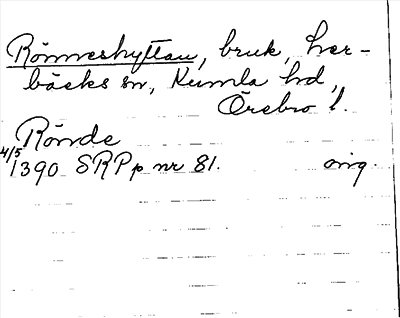 Rönneshyttan, bruk, Ler-
bäcks sn, Kumla hd,
Örebro l.
Rönde
4/5 1390 SRPp nr 81. orig.